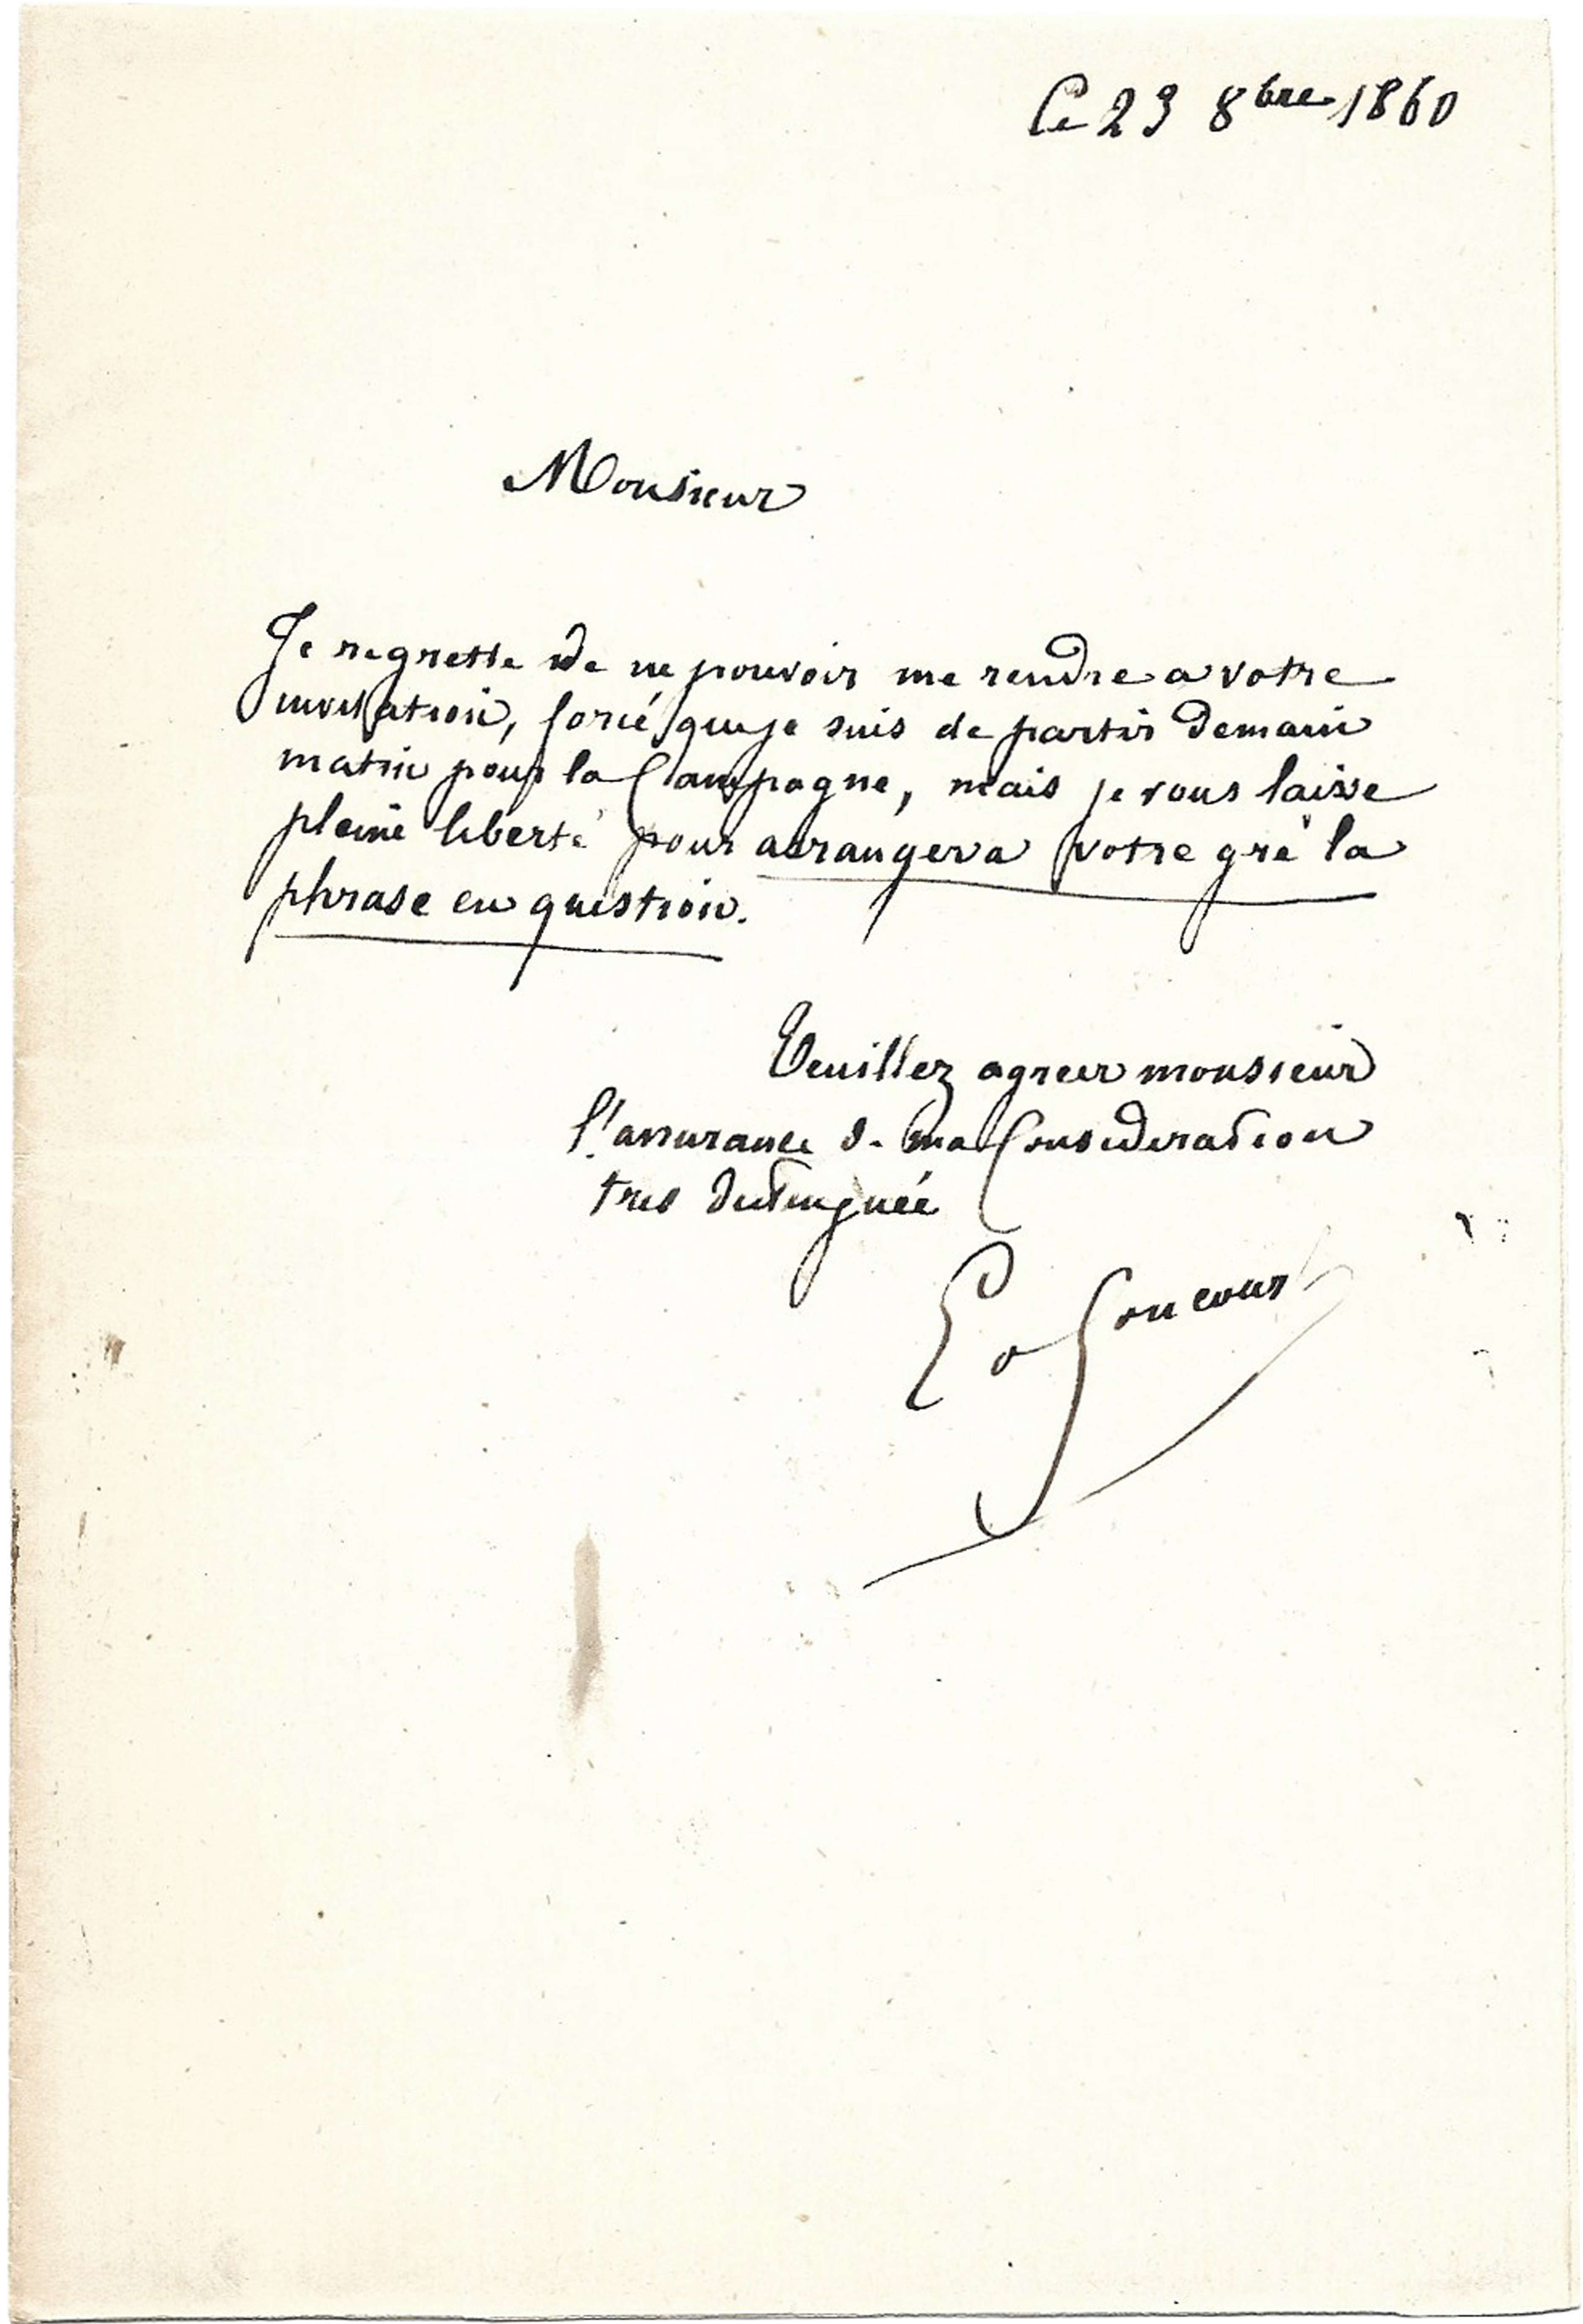 Ce 29 8bre 1860
Monsieur
Je regrette de ne pouvoir me rendre a votre
invitation, forcé que je suis de partir demain
matin pour la Campagne, mais je vous laisse
pleine liberté pour arranger a votre gré la
phrase en question.
Veuillez agreer monsieur
l'assurance de ma Consideration
tres distinguée
Goncourt